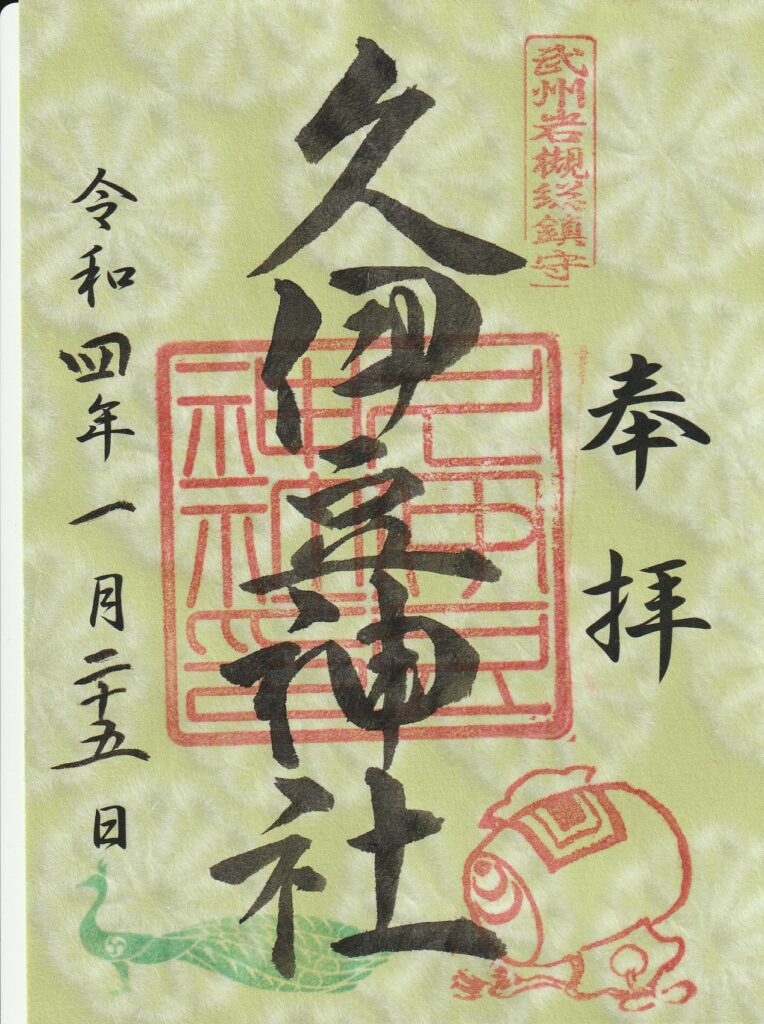 武州岩槻総鎮守
奉拝
久伊豆神社
久伊豆神社印
令和四年一月二十五日